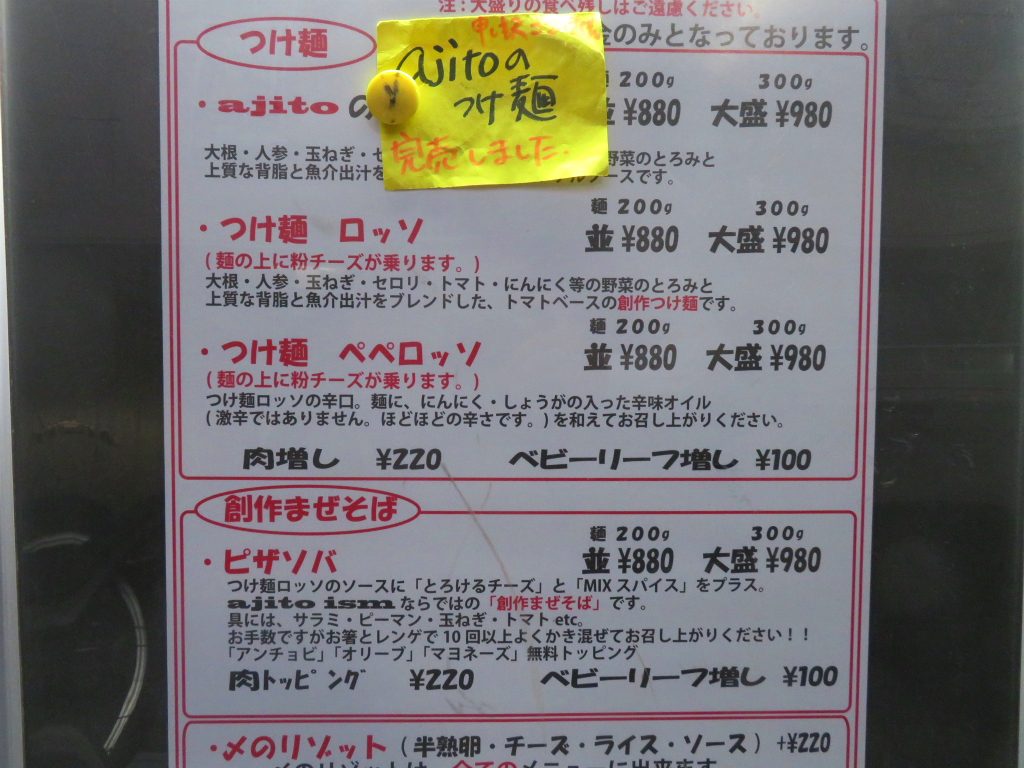 注：大盛りの食べ残しはご遠慮ください。
金のみとなっております。
つけ麺
ajitoの
つけ麺
完売しました。
200g 300g
・ajitoの 並 ¥880 大盛 ¥980
大根・人参・玉ねぎ・セ 野菜のとろみと
上質な背脂と魚介出汁を ースです。
麺 200g 300g
・つけ麺 ロッソ 並 ¥880 大盛 ¥980
(麺の上に粉チーズが乗ります。)
大根・人参・玉ねぎ・セロリ・トマト・にんにく等の野菜のとろみと
上質な背脂と魚介出汁をブレンドした、トマトベースの創作つけ麺です。
麺 200g 300g
・つけ麺 ペペロッソ 並 ¥880 大盛 ¥980
(麺の上に粉チーズが乗ります。)
つけ麺ロッソの辛口。麺に、にんにく・しょうがの入った辛味オイル
(激辛ではありません。ほどほどの辛さです。)を和えてお召し上がりください。
肉増し ¥220 ベビーリーフ増し ¥100
創作まぜそば
麺 200g 300g
・ピザソバ 並 ¥880 大盛 ¥980
つけ麺ロッソのソースに「とろけるチーズ」と「MIXスパイス」をプラス。
ajito ismならではの「創作まぜそば」です。
具には、サラミ・ピーマン・玉ねぎ・トマト etc.
お手数ですがお箸とレンゲで10回以上よくかき混ぜてお召し上がりください！！
「アンチョビ」「オリーブ」「マヨネーズ」無料トッピング
肉トッピング ¥220 ベビーリーフ増し ¥100
・〆のリゾット（半熟卵・チーズ・ライス・ソース）+¥220
〆のリゾットは、全てのメニューに出来ます